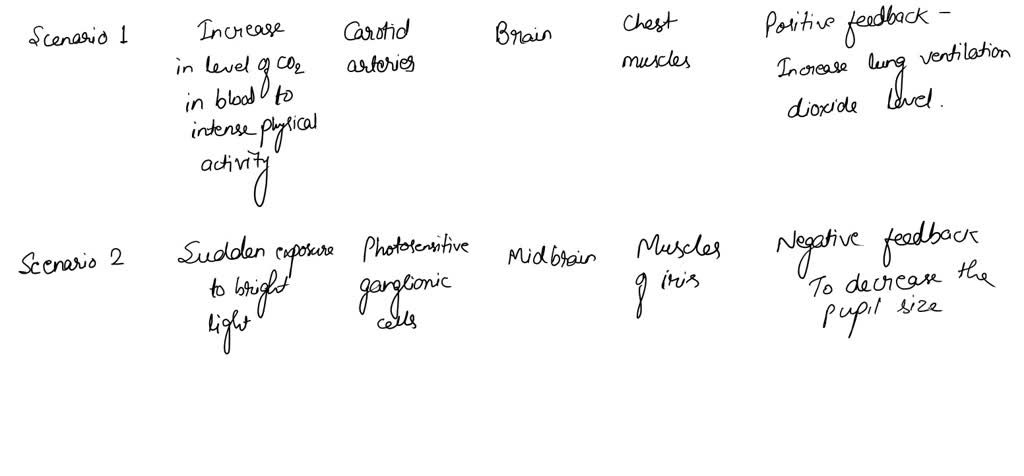 Scenario 1
Increase
in level of CO2
in blood to
intense physical
activity
Carotid
arteries
Brain
Chest
muscles
Positive feedback -
Increase lung ventilation
dioxide level.
Scenario 2
Sudden exposure
to bright
light
Photosensitive
ganglionic
cells
Midbrain
Muscles
of iris
Negative feedback
To decrease the
pupil size